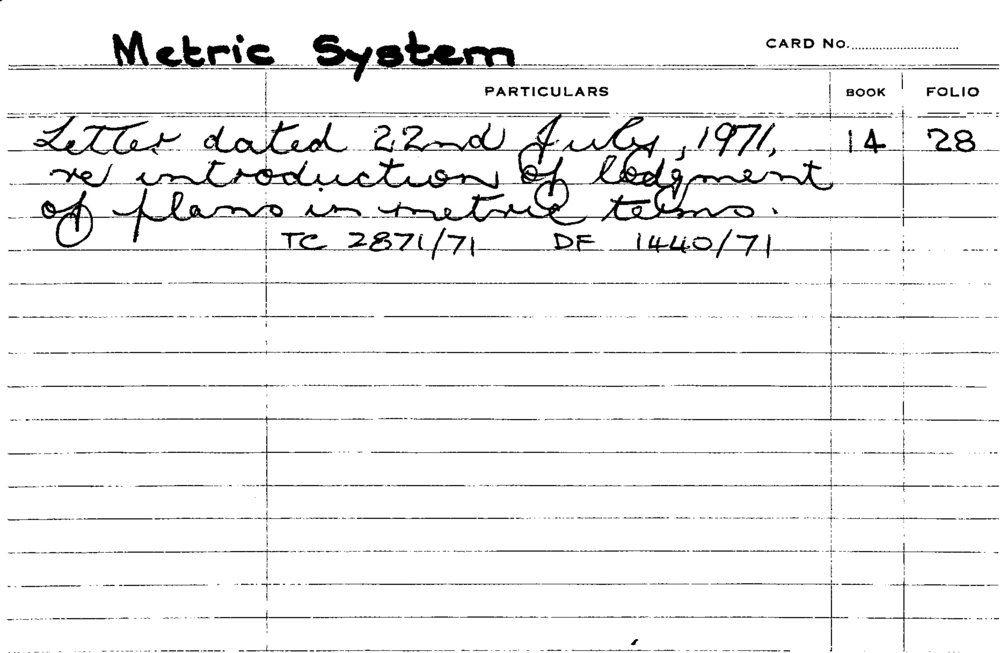 Metric System CARD No.
PARTICULARS BOOK FOLIO
Letter dated 22nd July, 1971, 14 28
re introduction of lodgment
of plans in metric terms.
TC 2871/71 DF 1440/71